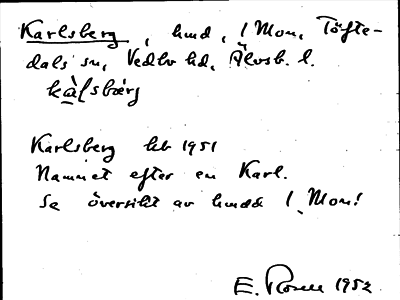 Karlsberg, hmd, 1 Mon, Töfte-
dals sn, Vedbo hd, Älvsb. l.
kàlsbærg
Karlsberg hb 1951
Namnet efter en Karl.
Se översikt av hmd& 1 Mon!
E. Rosen 1952